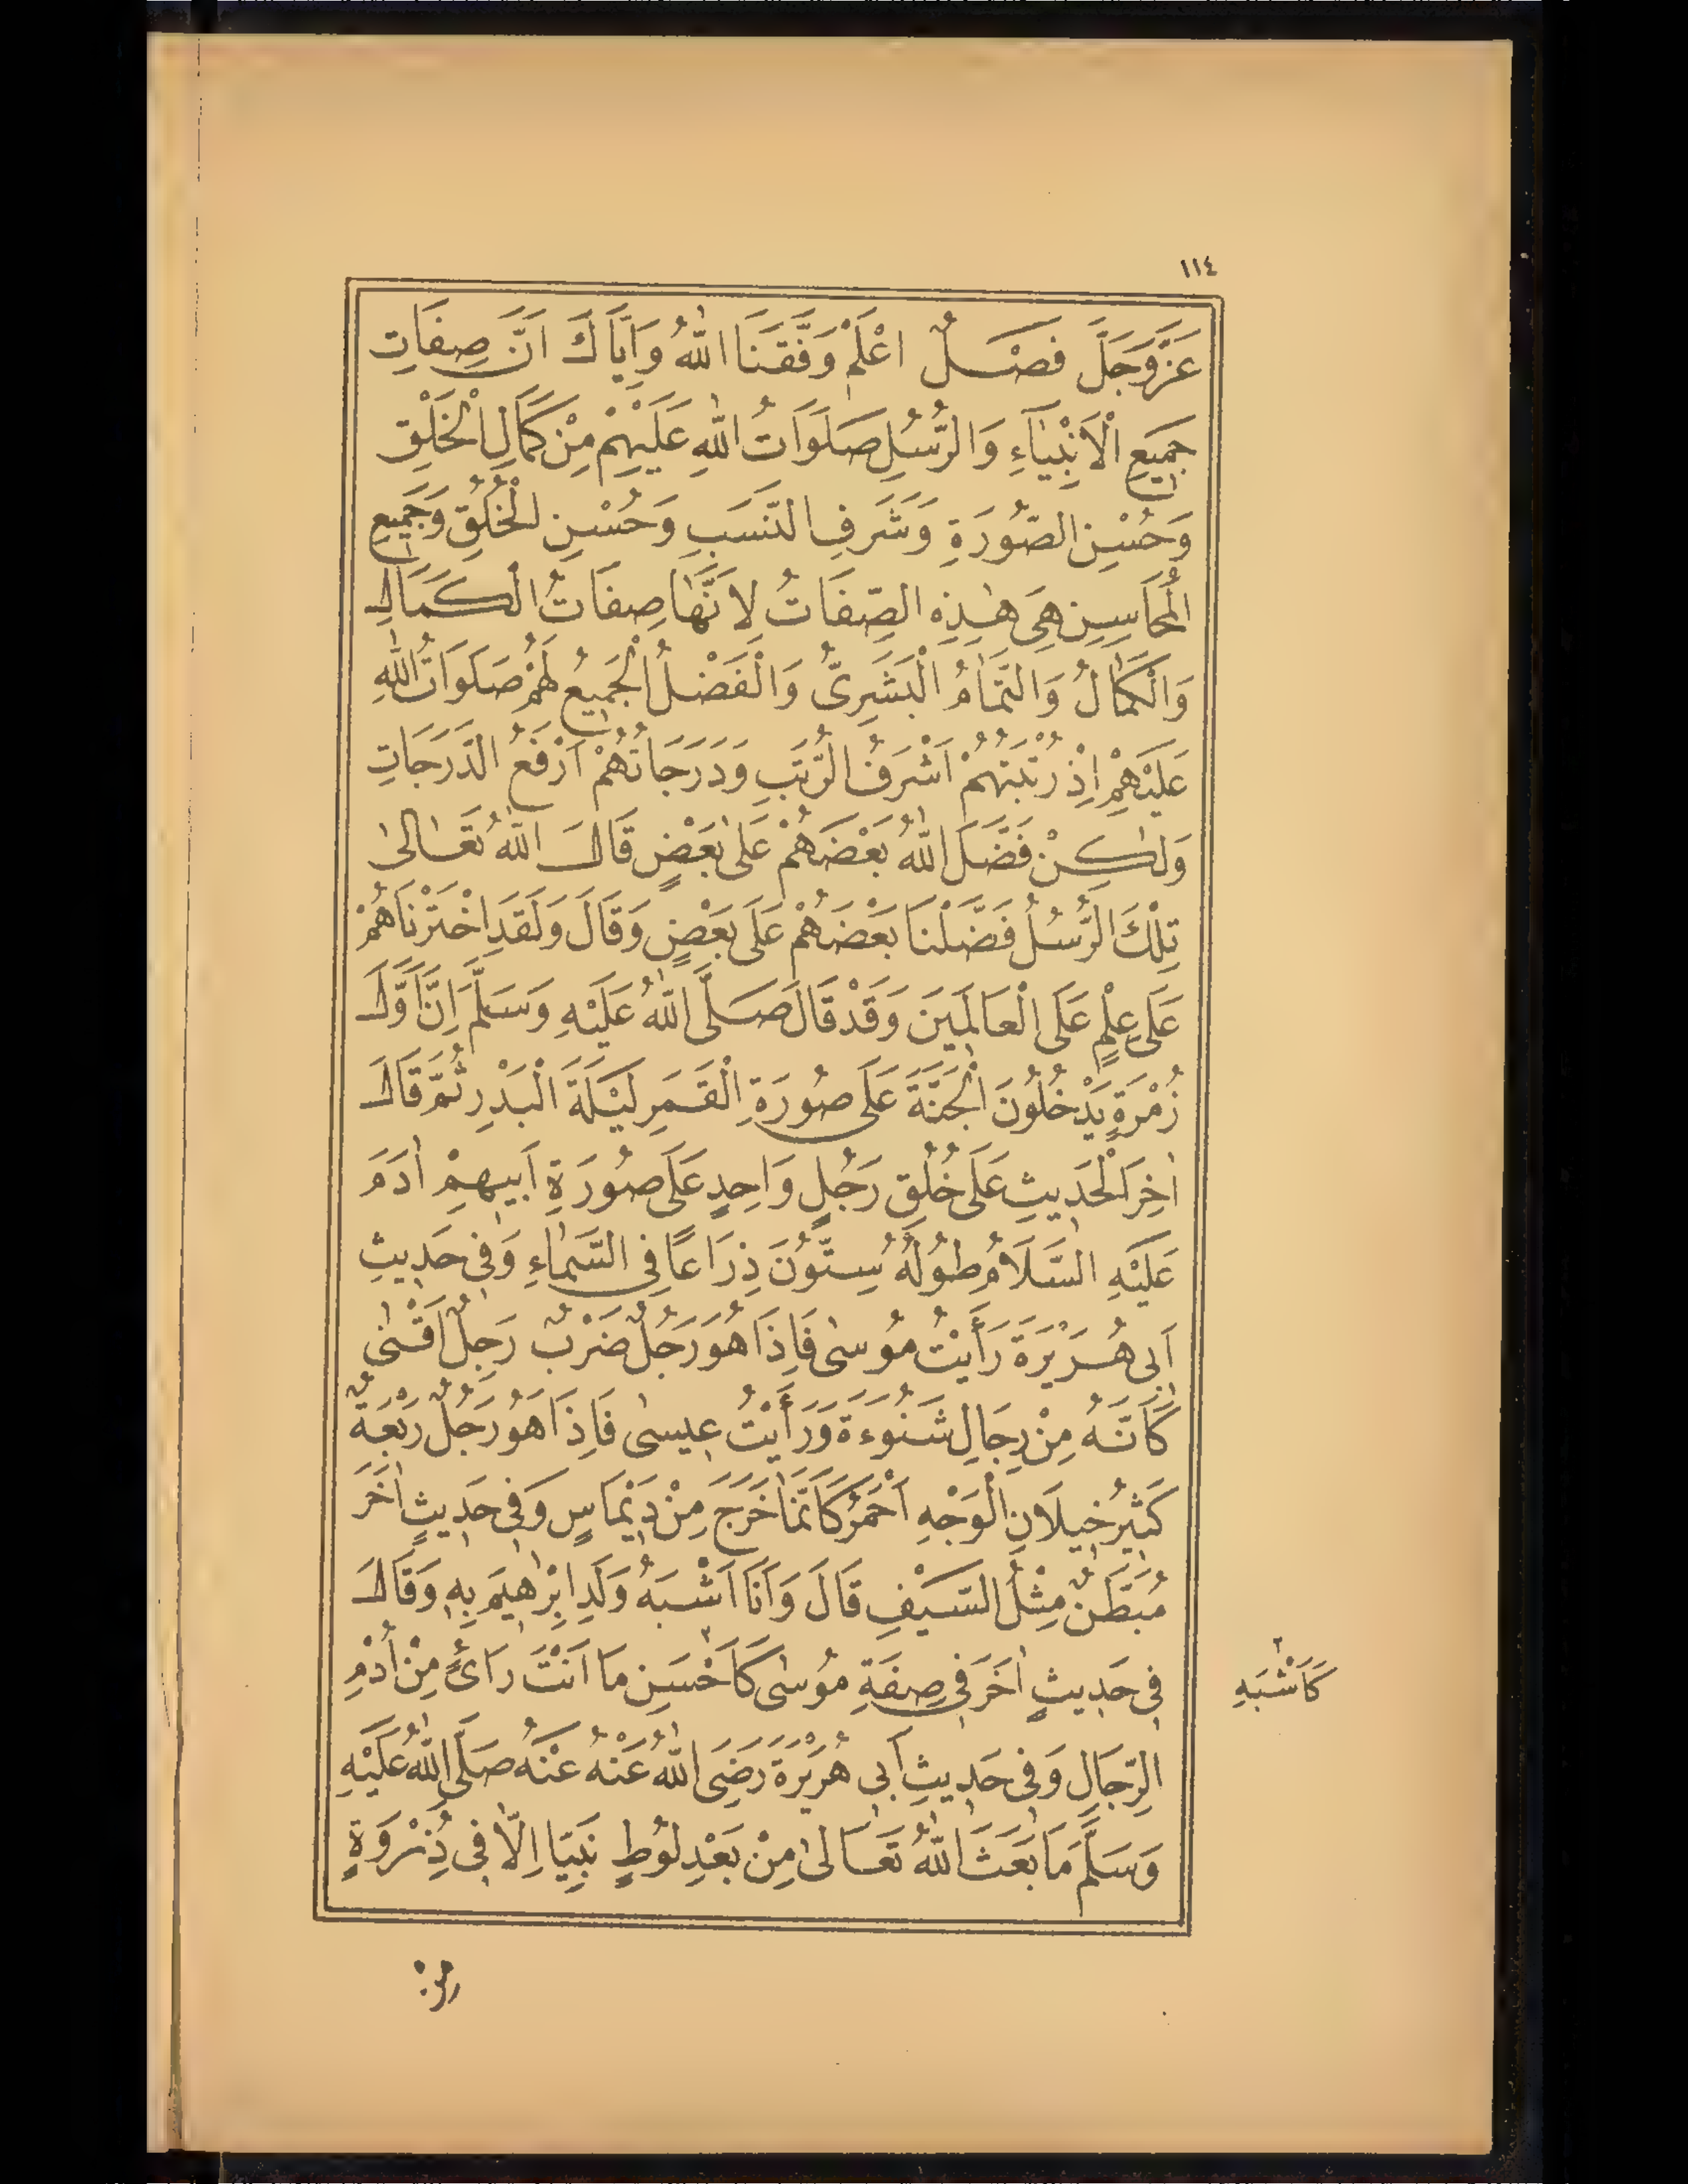 ١١٤
عَزَّ وَجَلَّ فَصْـــلٌ اعْلَمْ وَفَّقَنَا اللّٰهُ وَاِيَّاكَ اَنَّ صِفَاتِ
جَمِيعِ الْاَنْبِيَآءِ وَالرُّسُلِ صَلَوَاتُ اللّٰهِ عَلَيْهِمْ مِنْ كَمَالِ الْخَلْقِ
وَحُسْنِ الصُّورَةِ وَشَرَفِ النَّسَبِ وَحُسْنِ الْخُلُقِ وَجَمِيعِ
الْمَحَاسِنِ هِىَ هٰذِهِ الصِّفَاتُ لِاَنَّهَا صِفَاتُ الْكَمَالِ
وَالْكَمَالُ وَالتَّمَامُ الْبَشَرِىُّ وَالْفَضْلُ الْجَمِيعُ لَهُمْ صَلَوَاتُ اللّٰهِ
عَلَيْهِمْ اِذْ رُتْبَتُهُمْ اَشْرَفُ الرُّتَبِ وَدَرَجَاتُهُمْ اَرْفَعُ الدَّرَجَاتِ
وَلٰكِنْ فَضَّلَ اللّٰهُ بَعْضَهُمْ عَلٰى بَعْضٍ قَالَ اللّٰهُ تَعَالٰى
تِلْكَ الرُّسُلُ فَضَّلْنَا بَعْضَهُمْ عَلَى بَعْضٍ وَقَالَ وَلَقَدِ اخْتَرْنَاهُمْ
عَلَى عِلْمٍ عَلَى الْعَالَمِينَ وَقَدْ قَالَ صَلَّى اللّٰهُ عَلَيْهِ وَسَلَّمَ اِنَّ اَوَّلَ
زُمْرَةٍ يَدْخُلُونَ الْجَنَّةَ عَلَى صُورَةِ الْقَمَرِ لَيْلَةَ الْبَدْرِ ثُمَّ قَالَ
اٰخِرَ الْحَدِيثِ عَلَى خُلُقِ رَجُلٍ وَاحِدٍ عَلَى صُورَةِ اَبِيهِمْ اٰدَمَ
عَلَيْهِ السَّلَامُ طُولُهُ سِتُّونَ ذِرَاعًا فِى السَّمَاءِ وَفِى حَدِيثِ
اَبِى هُرَيْرَةَ رَأَيْتُ مُوسٰى فَاِذَا هُوَ رَجُلٌ ضَرْبٌ رَجِلٌ اَقْنٰى
كَاَنَّهُ مِنْ رِجَالِ شَنُوءَةَ وَرَأَيْتُ عِيسٰى فَاِذَا هُوَ رَجُلٌ رَبْعَةٌ
كَثِيرُ خِيلَانِ الْوَجْهِ اَحْمَرُ كَاَنَّمَا خَرَجَ مِنْ دِيْمَاسٍ وَفِى حَدِيثٍ اٰخَرَ
مُبَطَّنٌ مِثْلُ السَّيْفِ قَالَ وَاَنَا اَشْبَهُ وَلَدِ اِبْرٰهِيمَ بِهِ وَقَالَ
فِى حَدِيثٍ اٰخَرَ فِى صِفَةِ مُوسٰى كَاَحْسَنِ مَا اَنْتَ رَائٍ مِنْ اُدْمِ
كَاَشْبَهِ
الرِّجَالِ وَفِى حَدِيثِ اَبِى هُرَيْرَةَ رَضِىَ اللّٰهُ عَنْهُ عَنْهُ صَلَّى اللّٰهُ عَلَيْهِ
وَسَلَّمَ مَا بَعَثَ اللّٰهُ تَعَالٰى مِنْ بَعْدِ لُوطٍ نَبِيًّا اِلَّا فِى ذُِرْوَةٍ
مِنْ